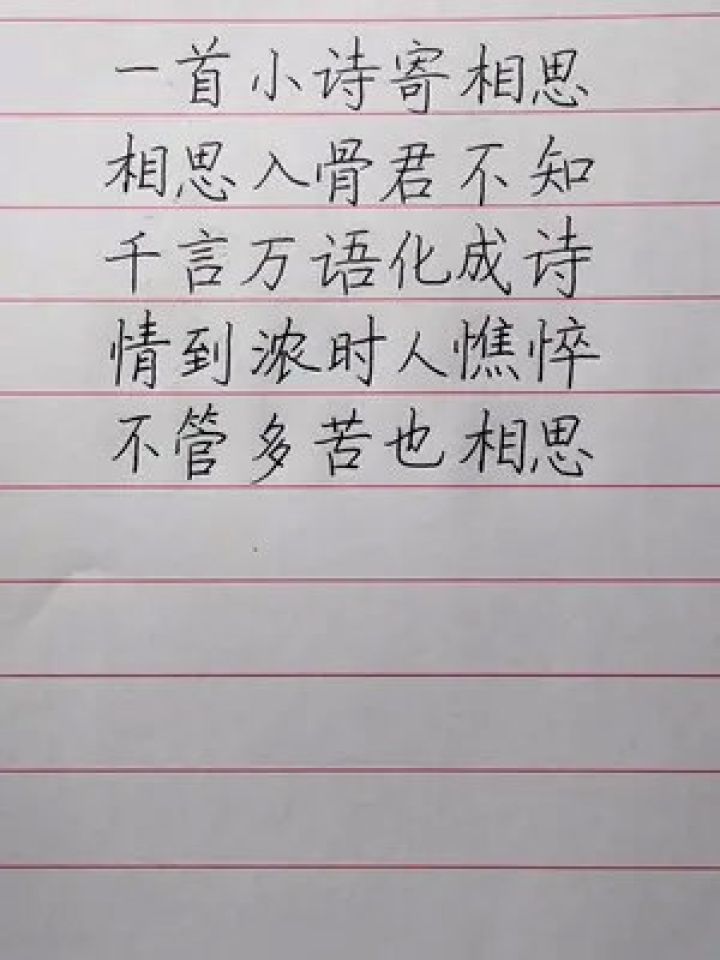 一首小诗寄相思
相思入骨君不知
千言万语化成诗
情到浓时人憔悴
不管多苦也相思